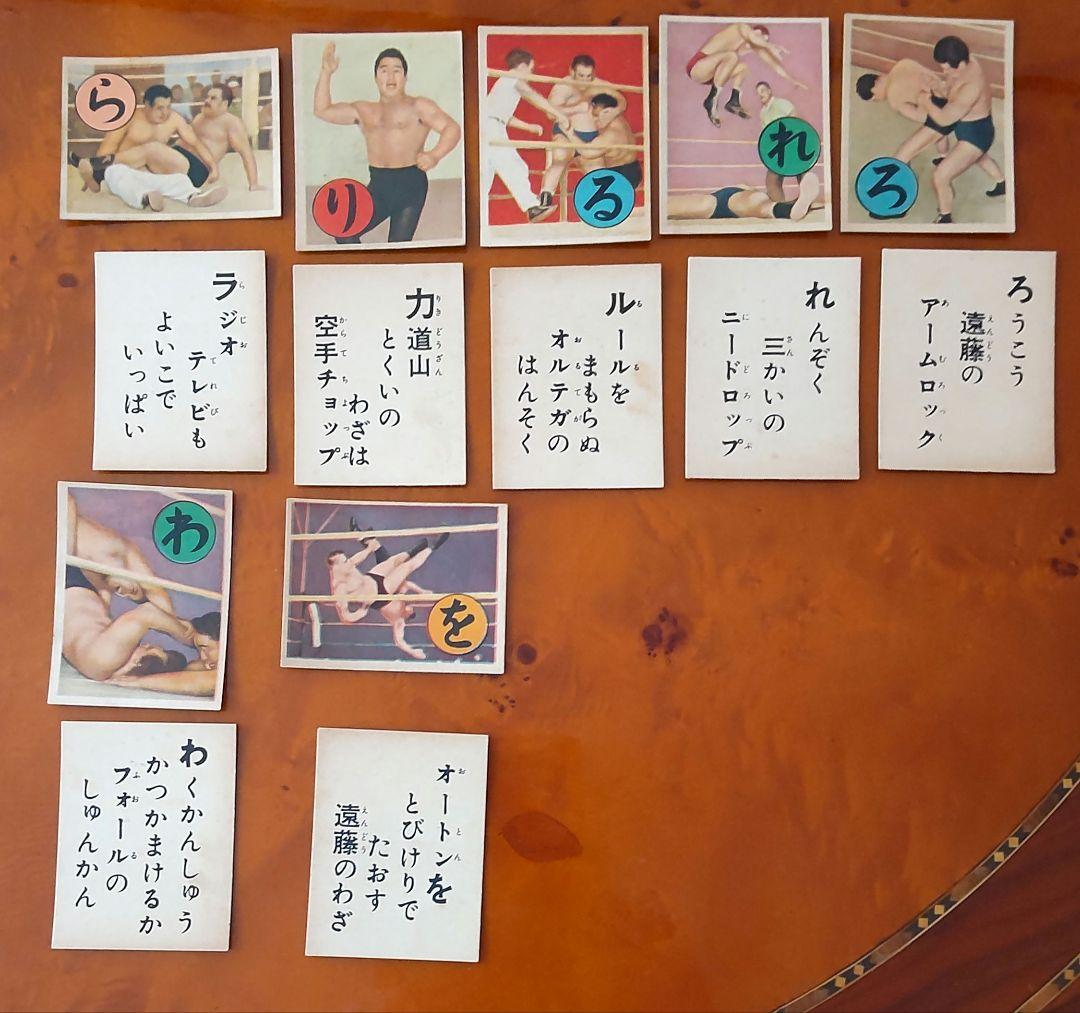 ら
り
る
れ
ろ
ラジオ
テレビも
よいこで
いっぱい
力道山
とくいの
わざは
空手チョップ
ルールを
まもらぬ
オルテガの
はんそく
れんぞく
三かいの
ニードロップ
ろうこう
遠藤の
アームロック
わ
を
わくかんしゅう
かつかまけるか
フォールの
しゅんかん
オートンを
とびけりで
たおす
遠藤のわざ